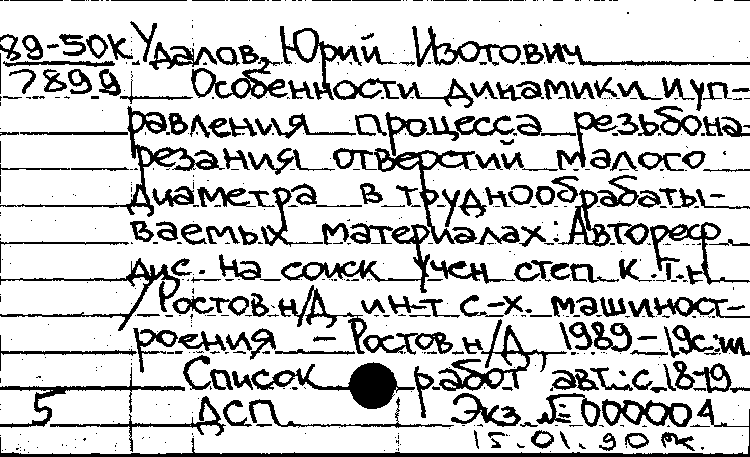 89-50К Удалов, Юрий Изотович
7899 Особенности динамики и уп-
равления процесса резьбона-
резания отверстий малого
диаметра в труднообрабаты-
ваемых материалах: Автореф.
дис. на соиск учен степ к.т.н.
/Ростов н/Д ин-т с.-х. машиност-
роения. - Ростов н/Д, 1989 - 19с:ил
Список работ авт.: с. 18-19.
5 ДСП. Экз. № 000004
15.01.90